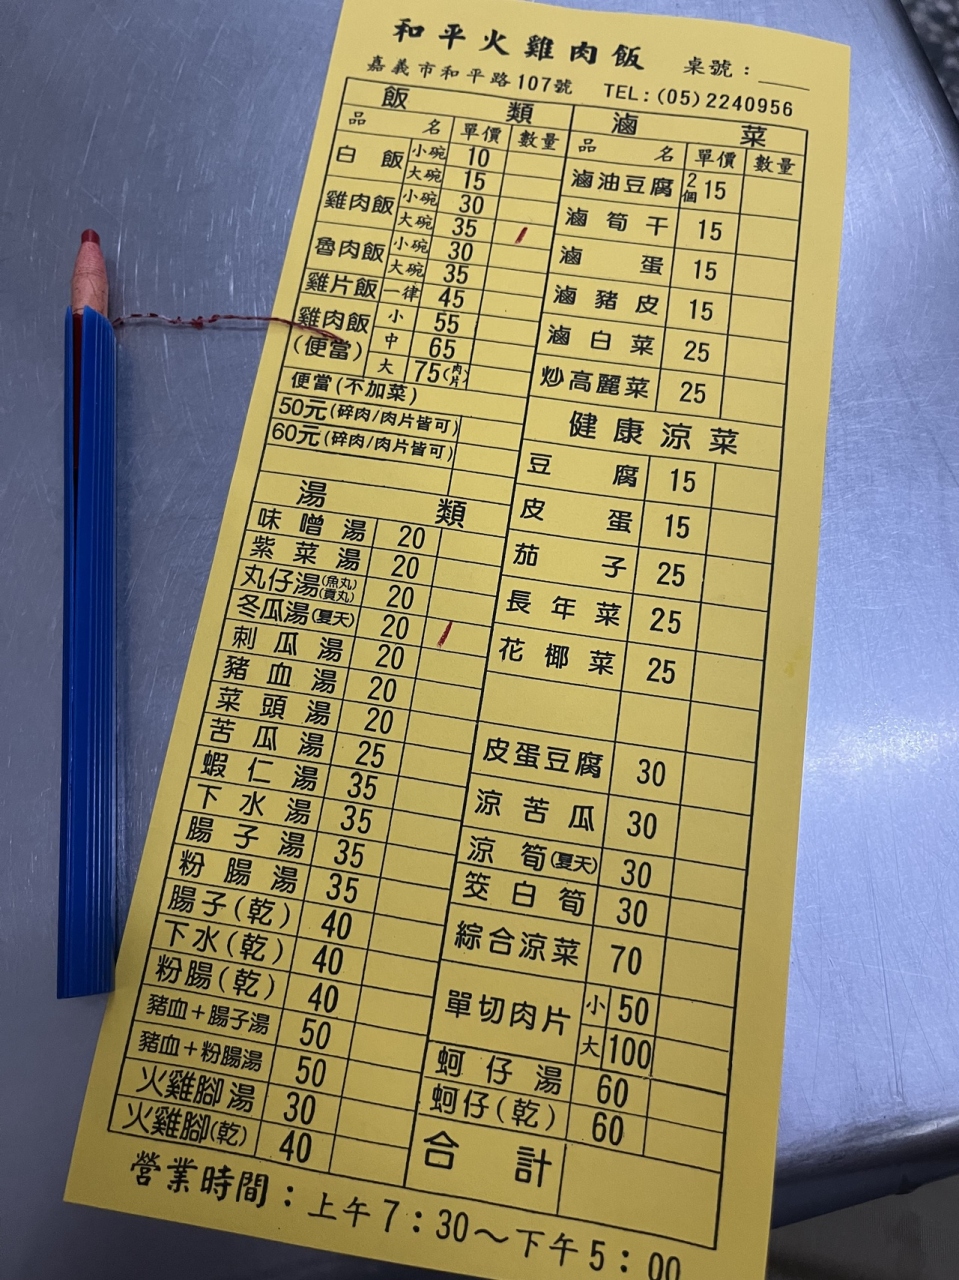 和平火雞肉飯 桌號：
嘉義市和平路107號 TEL:(05)2240956
飯類
品名 單價 數量
白飯 小碗 10
大碗 15
雞肉飯 小碗 30
大碗 35
魯肉飯 小碗 30
大碗 35
雞片飯 一律 45
雞肉飯(便當) 小 55
中 65
大 75(肉片)
便當(不加菜)
50元(碎肉/肉片皆可)
60元(碎肉/肉片皆可)
湯類
味噌湯 20
紫菜湯 20
丸仔湯(魚丸)(貢丸) 20
冬瓜湯(夏天) 20
刺瓜湯 20
豬血湯 20
菜頭湯 20
苦瓜湯 25
蝦仁湯 35
下水湯 35
腸子湯 35
粉腸湯 35
腸子(乾) 40
下水(乾) 40
粉腸(乾) 40
豬血+腸子湯 50
豬血+粉腸湯 50
火雞腳湯 30
火雞腳(乾) 40
滷菜
品名 單價 數量
滷油豆腐 2個 15
滷筍干 15
滷蛋 15
滷豬皮 15
滷白菜 25
炒高麗菜 25
健康涼菜
豆腐 15
皮蛋 15
茄子 25
長年菜 25
花椰菜 25
皮蛋豆腐 30
涼苦瓜 30
涼筍(夏天) 30
筊白筍 30
綜合涼菜 70
單切肉片 小 50
大 100
蚵仔湯 60
蚵仔(乾) 60
合計
營業時間：上午7：30～下午5：00